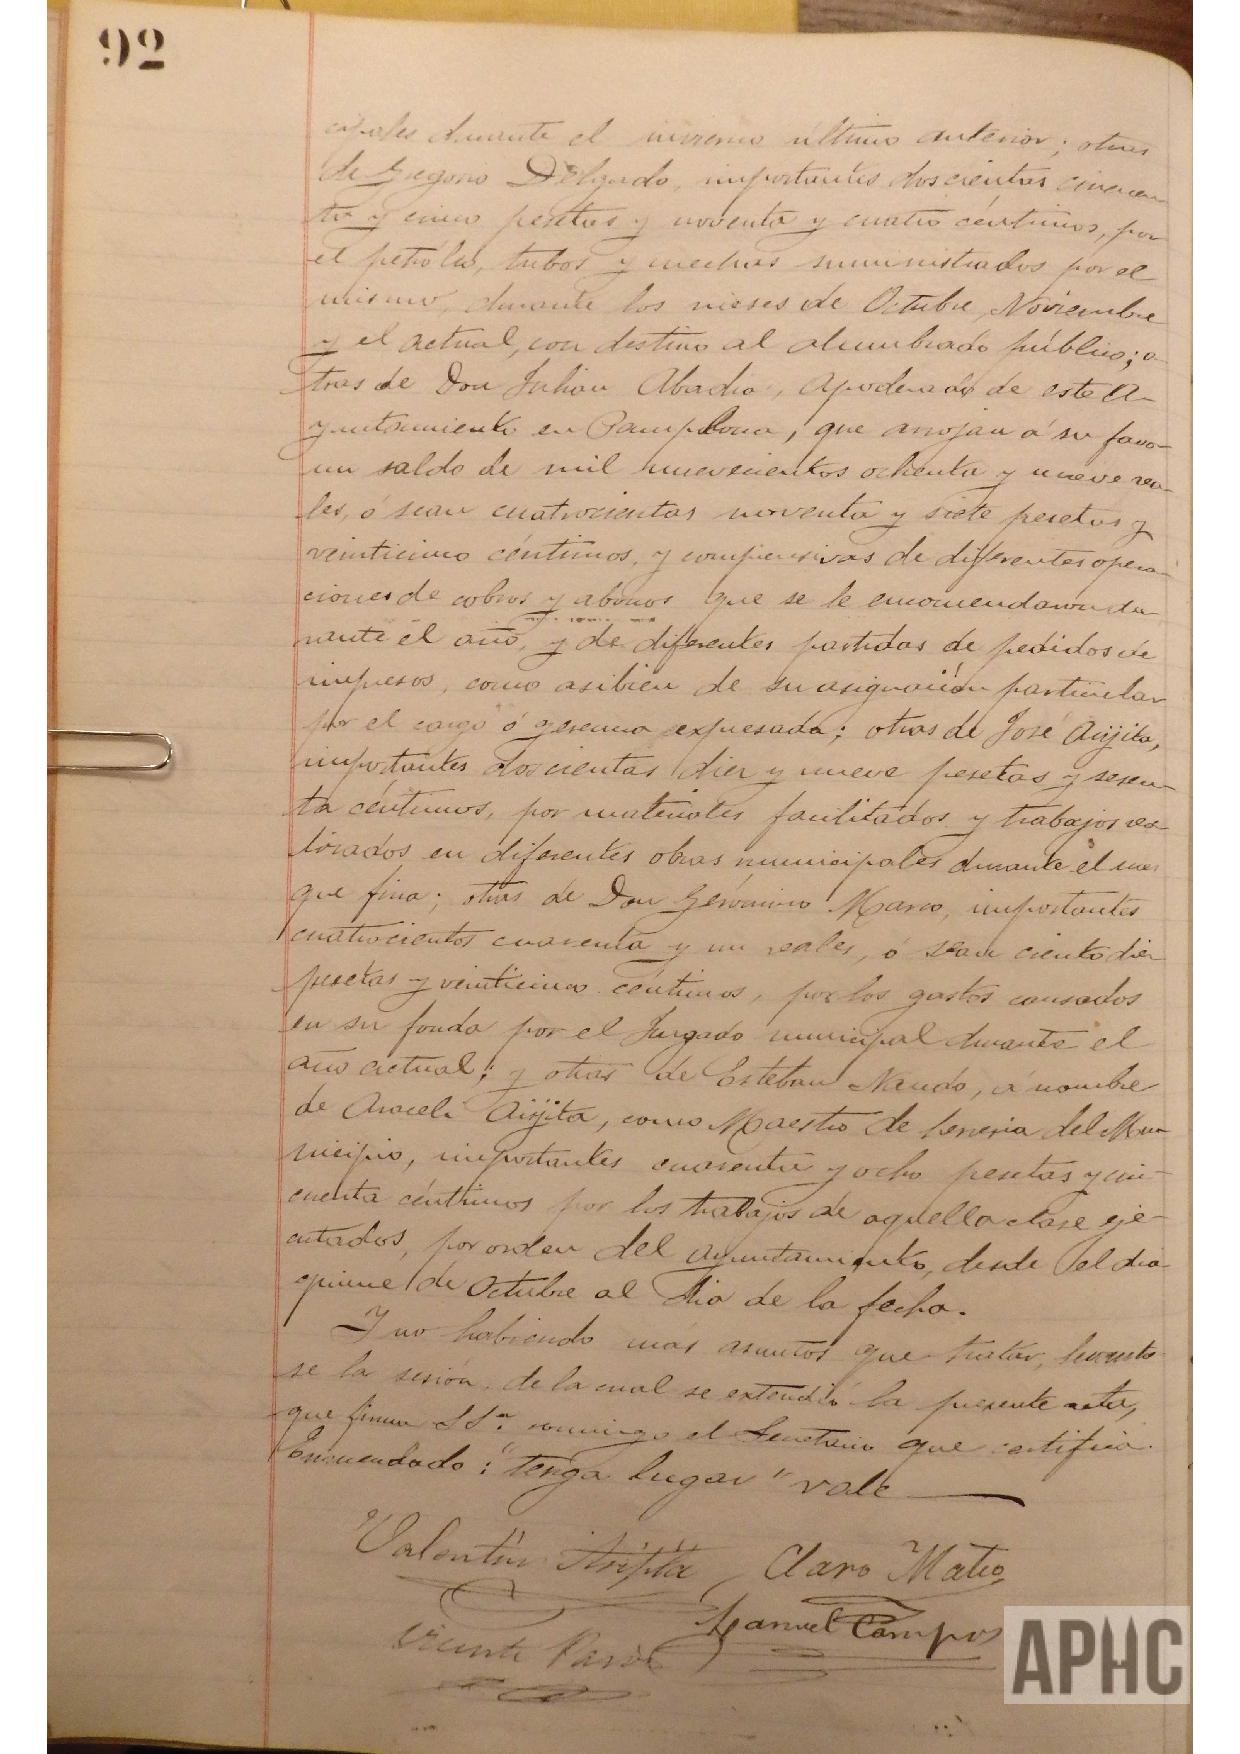 92
cipales durante el invierno último anterior; otras
de Gregorio Delgado, importantes doscientas cincuen-
ta y cinco pesetas y noventa y cuatro céntimos, por
el petróleo, tubos y mechas suministrados por el
mismo, durante los meses de Octubre, Noviembre
y el actual, con destino al alumbrado público; o-
tras de Don Julian Abadia, Apoderado de este A-
yuntamiento en Pamplona, que arrojan á su favor
un saldo de mil nuevecientos ochenta y nueve rea-
les, ó sean cuatrocientas noventa y siete pesetas y
veinticinco céntimos, y comprensivas de diferentes opera-
ciones de cobros y abonos que se le encomendaron du-
rante el año, y de diferentes partidas de pedidos de
impresos, como asibien de su asignación particular
por el cargo ó gerencia expresada; otras de José Airjita,
importantes doscientas diez y nueve pesetas y sesen-
ta céntimos, por materiales facilitados y trabajos
en diferentes obras municipales durante el mes
que fina; otras de Don Gerónimo Marco, importantes
cuatrocientos cuarenta y un reales, ó sean ciento diez
pesetas y veinticinco céntimos, por los gastos causados
en su fonda por el Juzgado municipal durante el
año actual; y otras de Esteban Nando, á nombre
de Araceli Airjita, como Maestro de herreria del Mu-
nicipio, importantes cuarenta y ocho pesetas y cin-
cuenta céntimos por los trabajos de aquella clase eje-
cutados, por orden del Ayuntamiento, desde el dia
quince de Octubre al dia de la fecha.
Y no habiendo más asuntos que tratar, levantó-
se la sesión, de la cual se extendió la presente acta,
que firman SSª. conmigo el Secretario que certifico.
Enmendado: "tenga lugar" vale
Valentín Airjita Claro Mateo
Manuel Campos
Vicente
APHC